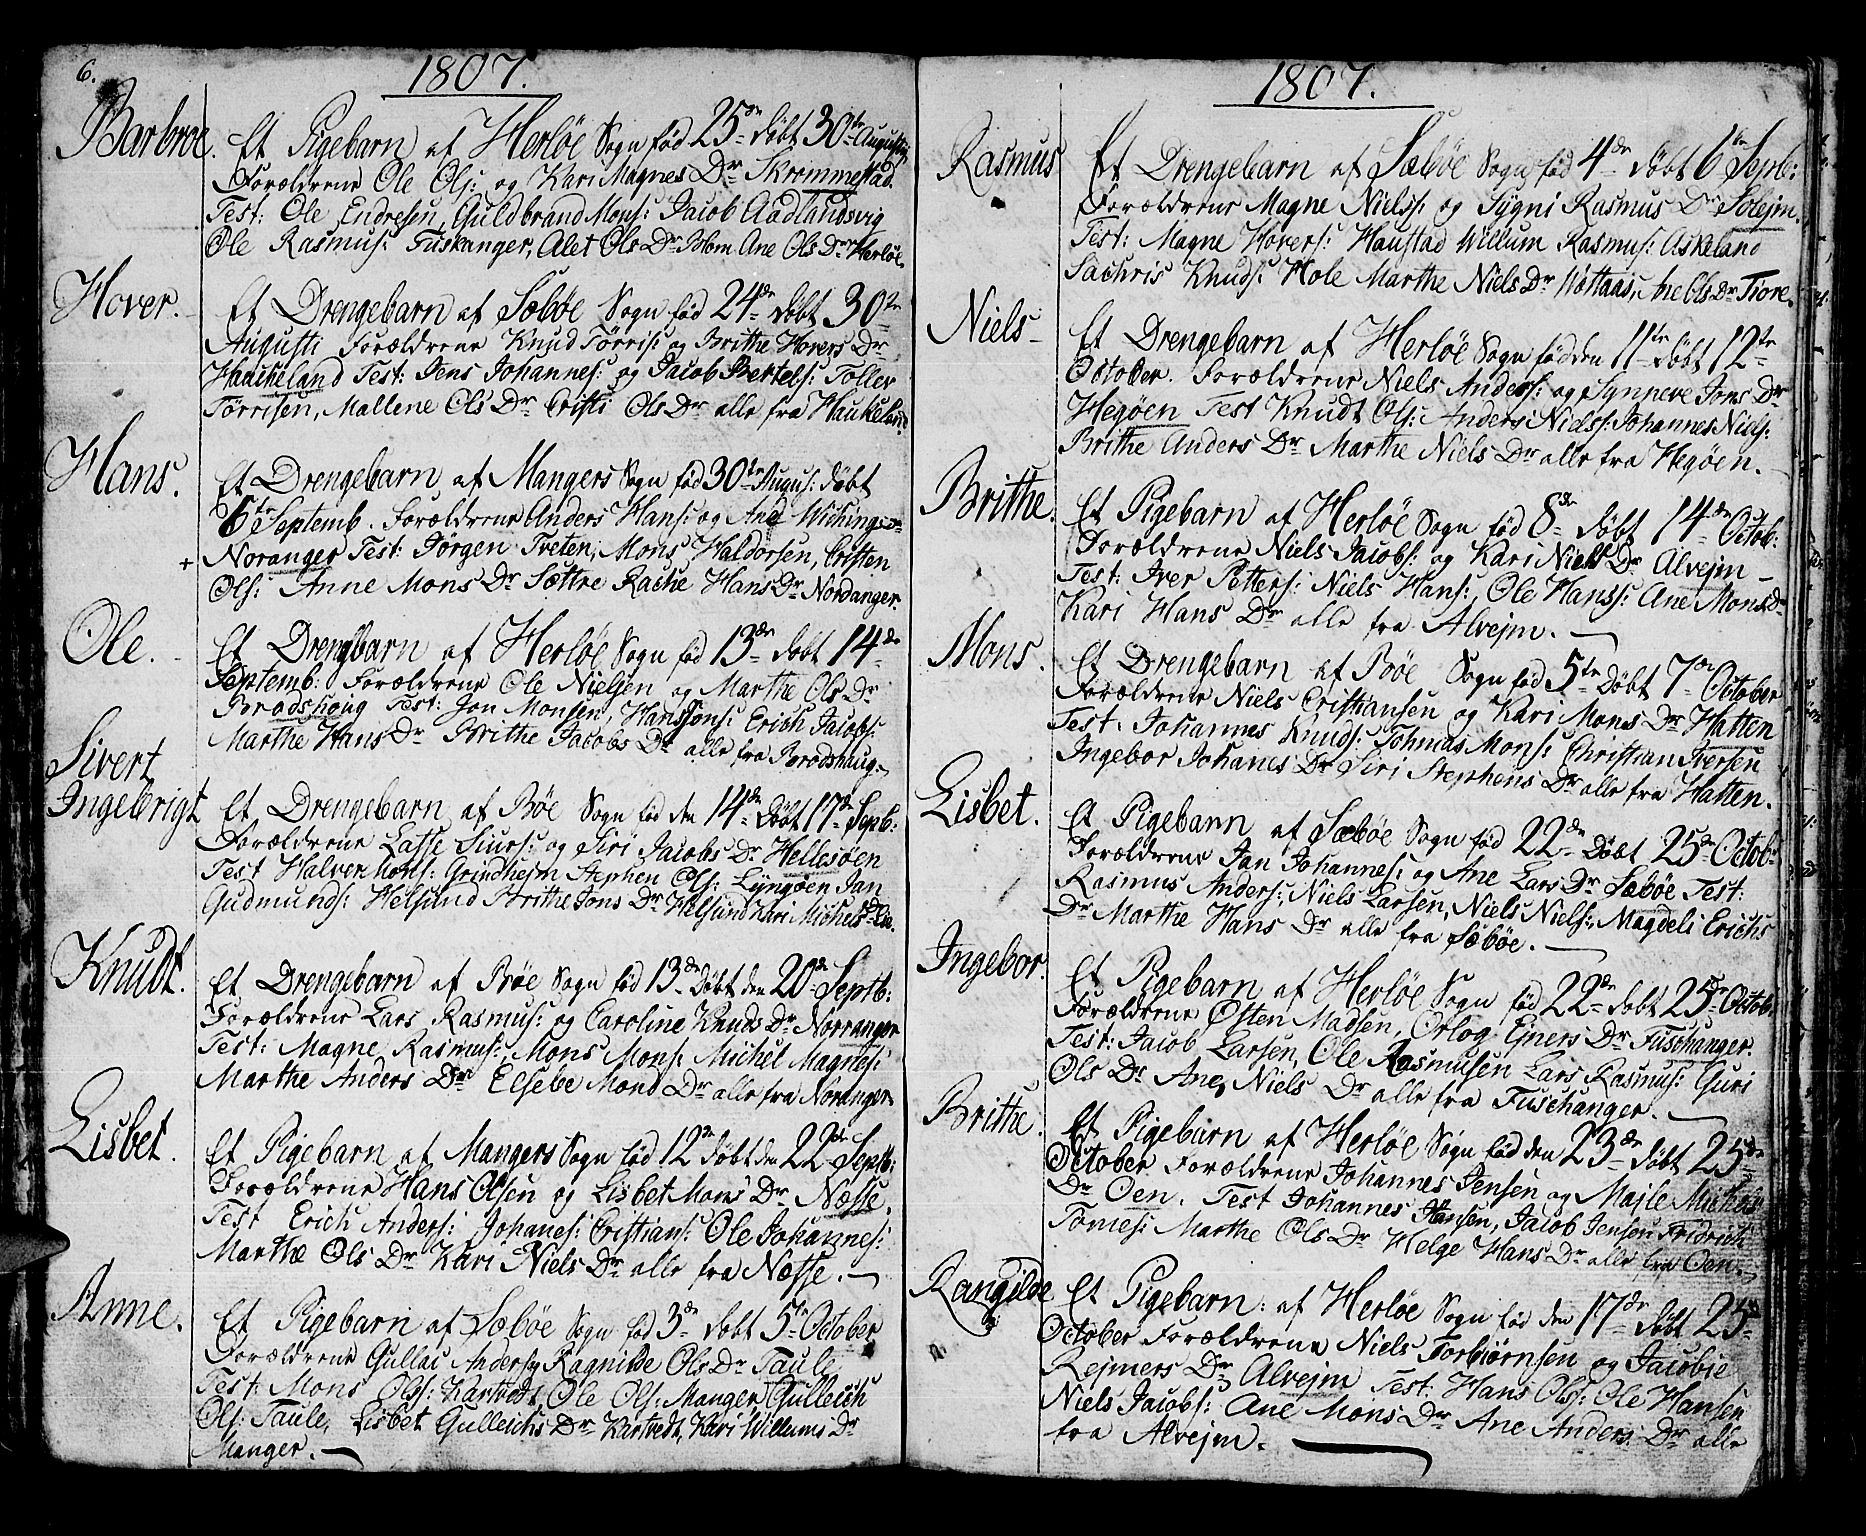 6.
1807.
Barbroe.
Et Pigebarn af Herløe Sogn fød 25de døbt 30te Augustij
Forældrene Ole Ols: og Kari Magnes Dr Skrommestad.
Test: Ole Endresen, Guldbrand Mons: Jacob Aadlandsvig
Ole Rasmus: Fuskanger, Alet Ols Dr Blom Ane Ols Dr Herløe.
Hover.
Et Drengebarn af Sæbøe Sogn fød 24de døbt 30te
Augusti Forældrene Knud Tørris: og Brithe Hovers Dr
Hauckeland Test: Jens Johannes: og Jacob Bertels: Toller
Tørrisen, Mallene Ols Dr Cristi Ols Dr alle fra Haukeland.
Hans.
Et Drengebarn af Mangers Sogn fød 30te Augus: døbt
6te Septemb. Forældrene Anders Hans: og Ane Wichings
+ Noranger Test: Jørgen Tveten, Mons Haldorsen, Cristen
Ols: Anne Mons Dr Sættre Rache Hans Dr Nordanger.
Ole.
Et Drengebarn af Herløe Sogn fød 13de døbt 14de
Septemb: Forældrene Ole Nielsen og Marthe Ols Dr
Brodshoug Test: Jon Monsen, Hans Jons: Erich Jacobs:
Marthe Hans Dr Brithe Jacobs Dr alle fra Brodshaug.
Sivert
Ingebrigt
Et Drengebarn af Bøe Sogn fød den 14de Døbt 17de Septb:
Forældrene Lasse Siurs: og Siri Jacobs Dr Hellesøen
Test Halver Mons: Grindhejm Stephen Ols: Lyngøen Jan
Gudmunds: Helsund Brithe Jons Dr Helsund Kari Michels Dr
Knudt.
Et Drengebarn af Bøe Sogn fød 13de Døbt den 20de Septb:
Forældrene Lars Rasmus: og Caroline Knuds Dr Norranger
Test: Magne Rasmus: Mons Mons: Michel Magnes:
Marthe Anders Dr Elsebe Mons Dr alle fra Noranger
Lisbet.
Et Pigebarn af Mangers Sogn fød 12te døbt den 22de Septb:
Forældrene Hans Olsen og Lisbet Mons Dr Næsse.
Test Erich Anders: Johanes: Cristians: Ole Johannes:
Marthe Ols Dr Kari Niels Dr alle fra Næsse.
Anne.
Et Pigebarn af Sæbøe Sogn fød 3de døbt 5te October
Forældrene Gullac Anders og Ragnilde Ols Dr Taule
Test: Mons Ols: Kartvedt, Ole Ols: Manger Gulleich
Ols: Taule, Lisbet Gulleichs Dr Kartvedt, Kari Willums Dr
Manger.
1807.
Rasmus
Et Drengebarn af Sæbøe Sogn fød 4de døbt 6te Septb:
Forældrene Magne Niels: og Sygni Rasmus Dr Solejm.
Test: Magne Hovers: Haustad Willum Rasmus: Askeland
Sachris Knuds: Hole Marthe Niels Dr Høttaas, Ane Ols Dr Fiore.
Niels
Et Drengebarn af Herløe Sogn fød den 11te døbt 12te
October. Forældrene Niels Anders: og Synneve Jons Dr
Hegøen Test Knudt Ols: Anders Niels: Johannes Niels:
Brithe Anders Dr Marthe Niels Dr alle fra Hegøen.
Brithe.
Et Pigebarn af Herløe Sogn fød 8de døbt 14de Octob:
Forældrene Niels Jacobs: og Kari Niels Dr Alvejm
Test: Iver Petters: Niels Hans: Ole Hans: Ane Mons Dr
Kari Hans Dr alle fra Alvejm.
Mons.
Et Drengebarn af Bøe Sogn fød 5te Døbt 7de October
Forældrene Niels Cristiansen og Kari Mons Dr Hatten
Test: Johannes Knuds: Tohmas Mons: Christian Iversen
Ingebor Johanes Dr Siri Stephens Dr alle fra Hatten.
Lisbet.
Et Pigebarn af Sæbøe Sogn fød 22de Døbt 25de Octob:
Forældrene Jan Johannes: og Ane Lars Dr Sæbøe Test:
Rasmus Anders: Niels Larsen, Niels Niels: Magdeli Erichs
Dr Marthe Hans Dr alle fra Sæbøe.
Ingebor.
Et Pigebarn af Herløe Sogn fød 22de døbt 25de Octob:
Forældrene Østen Madsen, Orlog Ejners Dr Fuschanger.
Test: Jacob Larsen, Ole Rasmusen Lars Rasmus: Guri
Ols Dr Ane Niels Dr alle fra Fuschanger.
Brithe.
Et Pigebarn af Herløe Sogn fød den 23de døbt 25de
October Forældrene Johannes Jensen og Majle Michels
Dr Oen. Test Johannes Hansen, Jacob Jensen Fridrich
Tomes: Marthe Ols Dr Helge Hans Dr alle fra Oen.
Rangilde
Et Pigebarn: af Herløe Sogn fød den 17de døbt 25de
October Forældrene Niels Torbiørnsen og Jacobie
Rejners Dr Alvejm Test: Hans Ols: Ole Hansen
Niels Jacobs: Ane Mons Dr Ane Anders: Dr alle
fra Alvejm.